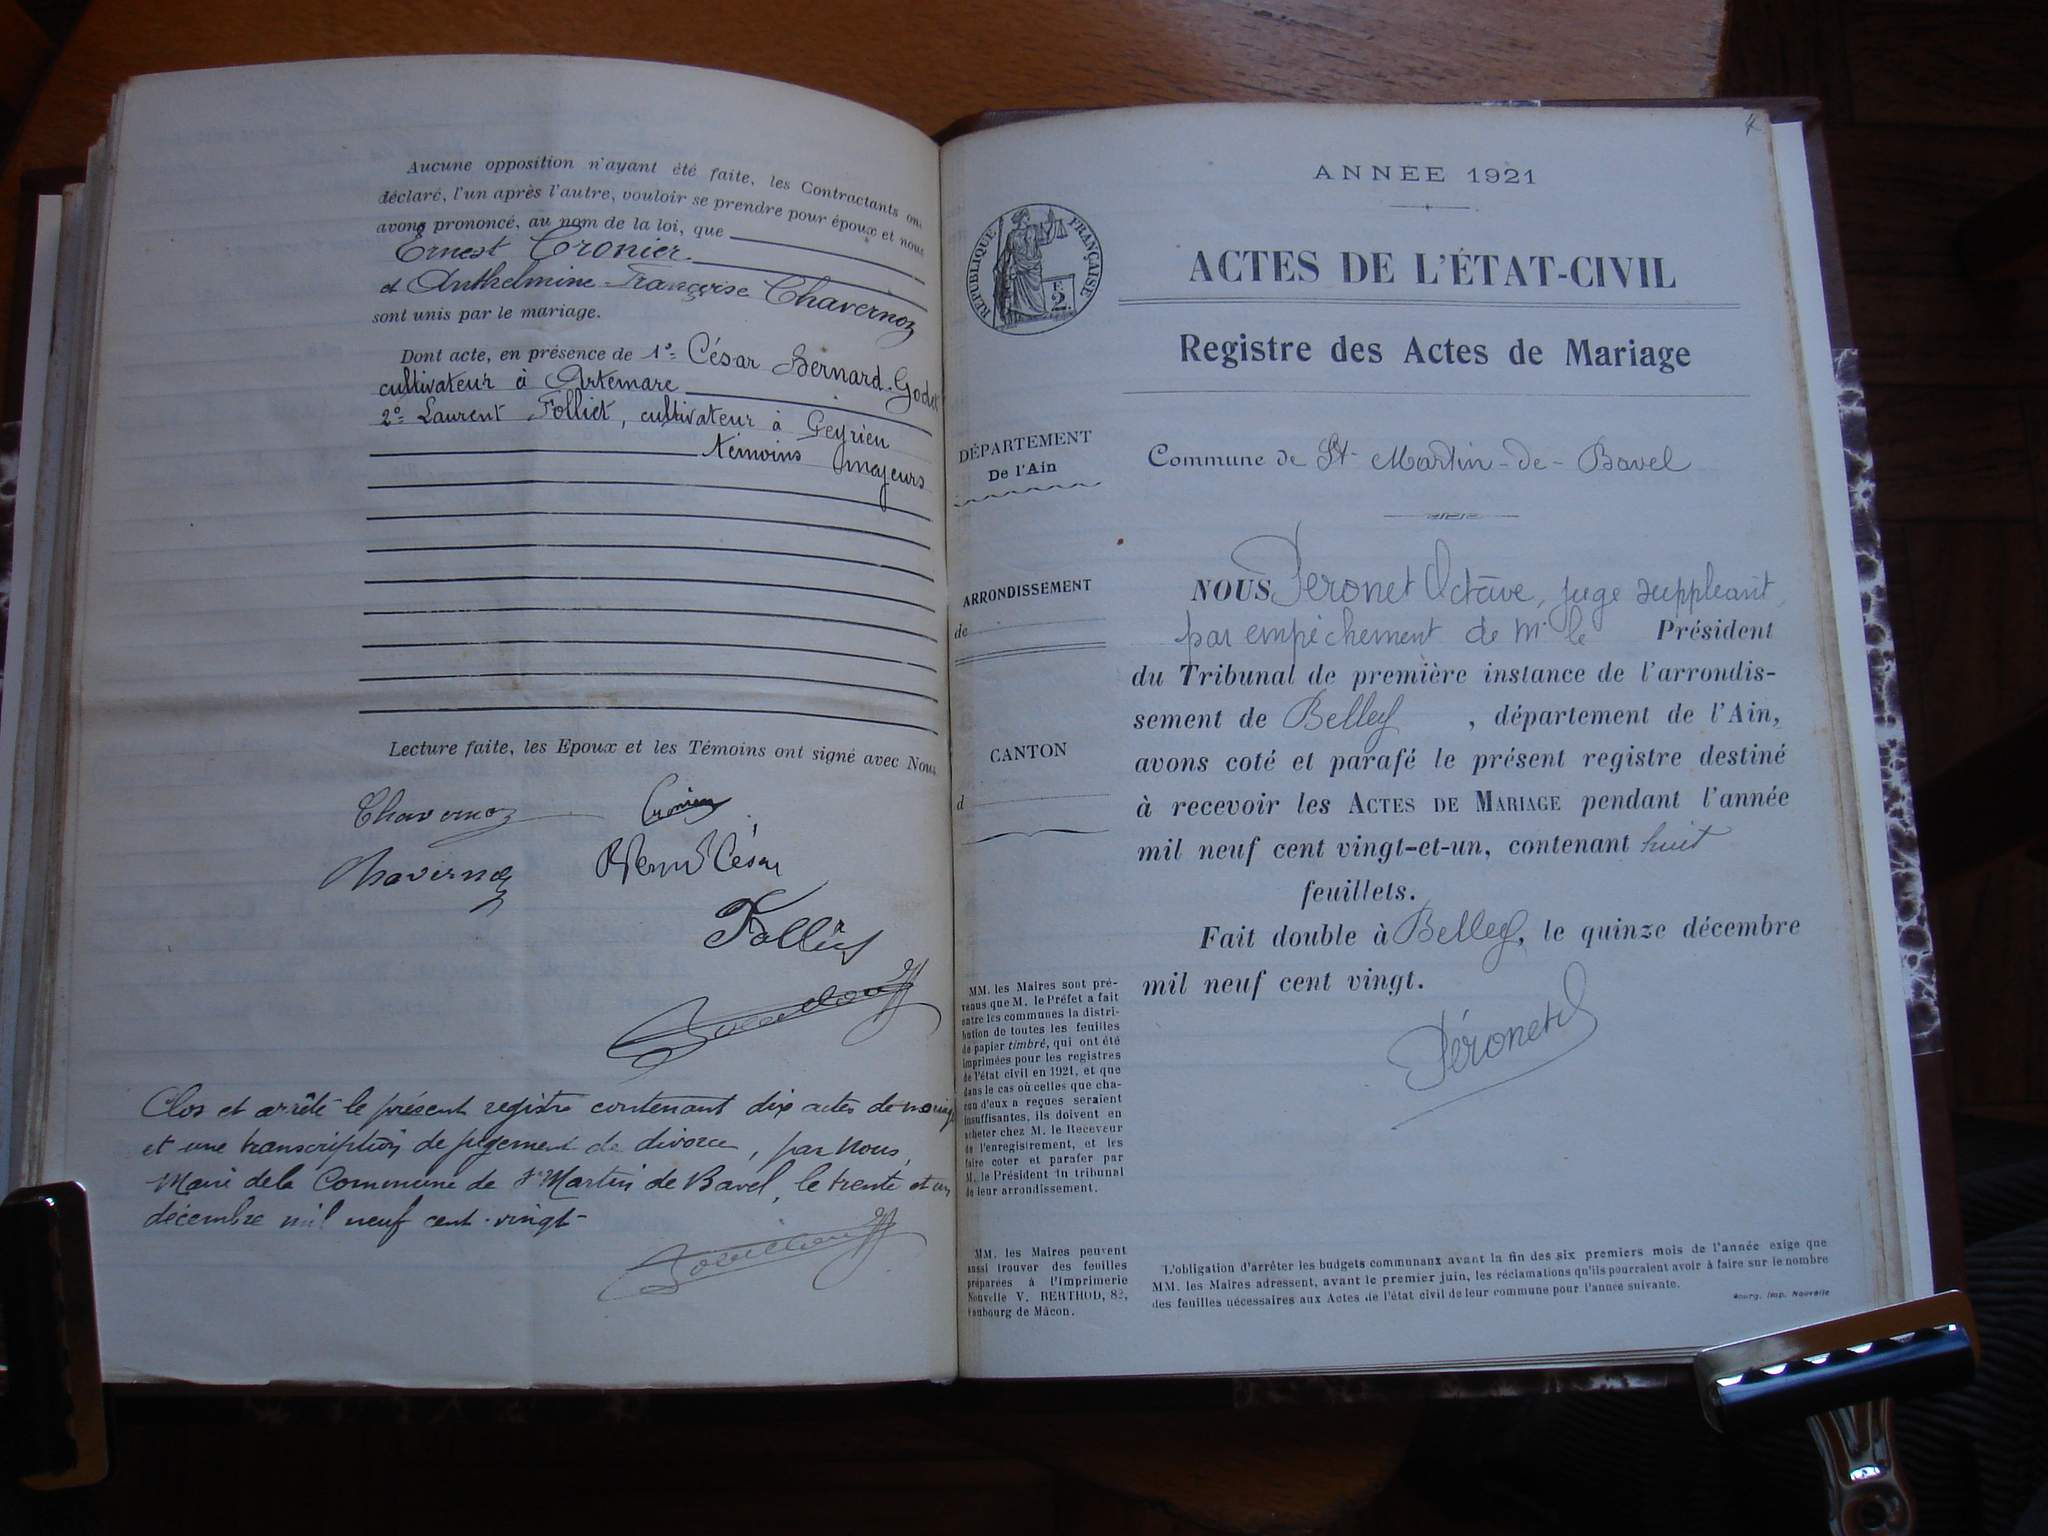 Aucune opposition n'ayant été faite, les Contractants ont
déclaré, l'un après l'autre, vouloir se prendre pour époux et nous
avons prononcé, au nom de la loi, que
Ernest Cronier
et Anthelmine Françoise Chavernoz
sont unis par le mariage.
Dont acte, en présence de 1º César Bernard-Godet
cultivateur à Artemare
2º Laurent Folliet, cultivateur à Ceyrieu
témoins majeurs
Lecture faite, les Epoux et les Témoins ont signé avec Nous
Chavernoz Cronier
Chavernoz César
Folliet
Clos et arrêté le présent registre contenant dix actes de mariage
et une transcription de jugement de divorce, par Nous,
Maire de la Commune de St Martin de Bavel, le trente et un
décembre mil neuf cent vingt
ANNÉE 1921
RÉPUBLIQUE FRANÇAISE
E
2
ACTES DE L'ÉTAT-CIVIL
Registre des Actes de Mariage
DÉPARTEMENT
De l'Ain
Commune de St-Martin-de-Bavel
ARRONDISSEMENT
de
CANTON
d
NOUS Péronet Octave, juge suppléant,
par empêchement de Mr le Président
du Tribunal de première instance de l'arrondis-
sement de Belley , département de l'Ain,
avons coté et parafé le présent registre destiné
à recevoir les ACTES DE MARIAGE pendant l'année
mil neuf cent vingt-et-un, contenant huit
feuillets.
Fait double à Belley, le quinze décembre
mil neuf cent vingt.
Péronet
MM. les Maires sont pré-
venus que M. le Préfet a fait
entre les communes la distri-
bution de toutes les feuilles
de papier timbré, qui ont été
imprimées pour les registres
de l'état civil en 1921, et que
dans le cas où celles que cha-
cun d'eux a reçues seraient
insuffisantes, ils doivent en
acheter chez M. le Receveur
de l'enregistrement, et les
faire coter et parafer par
M. le Président du tribunal
de leur arrondissement.
MM. les Maires peuvent
aussi trouver des feuilles
préparées à l'Imprimerie
Nouvelle V. BERTHOD, 82,
faubourg de Mâcon.
L'obligation d'arrêter les budgets communaux avant la fin des six premiers mois de l'année exige que
MM. les Maires adressent, avant le premier juin, les réclamations qu'ils pourraient avoir à faire sur le nombre
des feuilles nécessaires aux Actes de l'état civil de leur commune pour l'année suivante.
Bourg, Imp. Nouvelle